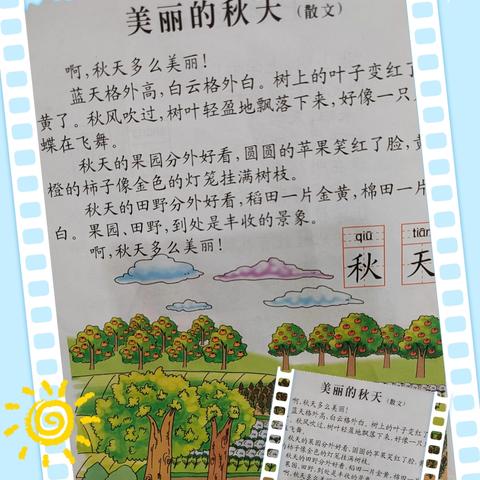 美丽的秋天（散文）
啊，秋天多么美丽！
蓝天格外高，白云格外白。树上的叶子变红了
黄了。秋风吹过，树叶轻盈地飘落下来，好像一只
蝶在飞舞。
秋天的果园分外好看，圆圆的苹果笑红了脸，黄
橙的柿子像金色的灯笼挂满树枝。
秋天的田野分外好看，稻田一片金黄，棉田一片
白。果园，田野，到处是丰收的景象。
啊，秋天多么美丽！
qiū tiān
秋 天
美丽的秋天（散文）
啊，秋天多么美丽！
蓝天格外高，白云格外白。树上的叶子变红了
秋风吹过，树叶轻盈地飘落下来，好像一
飞舞。
秋天的果园分外好看，圆圆的苹果笑红了
柿子像金色的灯笼挂满树枝。
秋天的田野分外好看，稻田一片金黄，棉田一
果园，田野，到处是丰收的景象。
啊，秋天多么美丽！